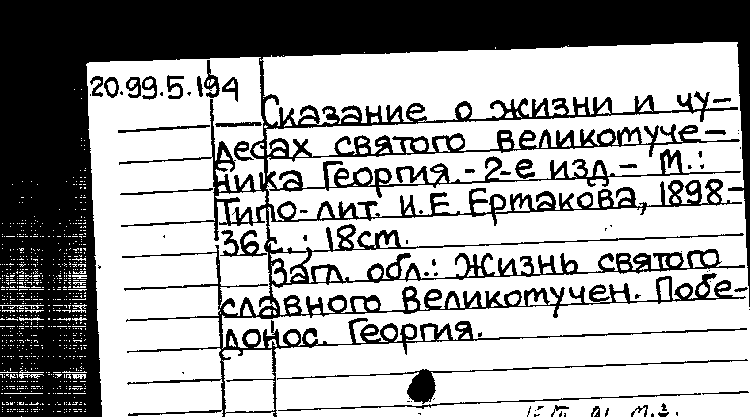 20.99.5.194
Сказание о жизни и чу-
десах святого великомуче-
ника Георгия.- 2-е изд.- М.:
Типо-лит. И.Е.Ермакова, 1898.-
36с.; 18см.
Загл. обл.: Жизнь святого
славного великомучен. Побе-
донос. Георгия.